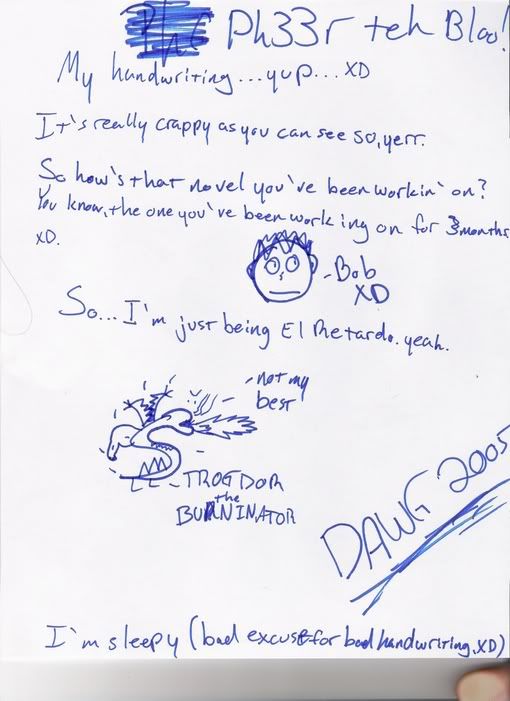 Ph33r teh Bloo!
My handwriting...yup...XD
It's really crappy as you can see so, yerr.
So how's that novel you've been workin' on?
You know, the one you've been working on for 3 months
XD.
-Bob
XD
So... I'm just being El Retardo. yeah.
-not my
best
-TROGDOR
the
BURNINATOR
DAWG 2005
I'm sleepy (bad excuse for bad handwriting XD)